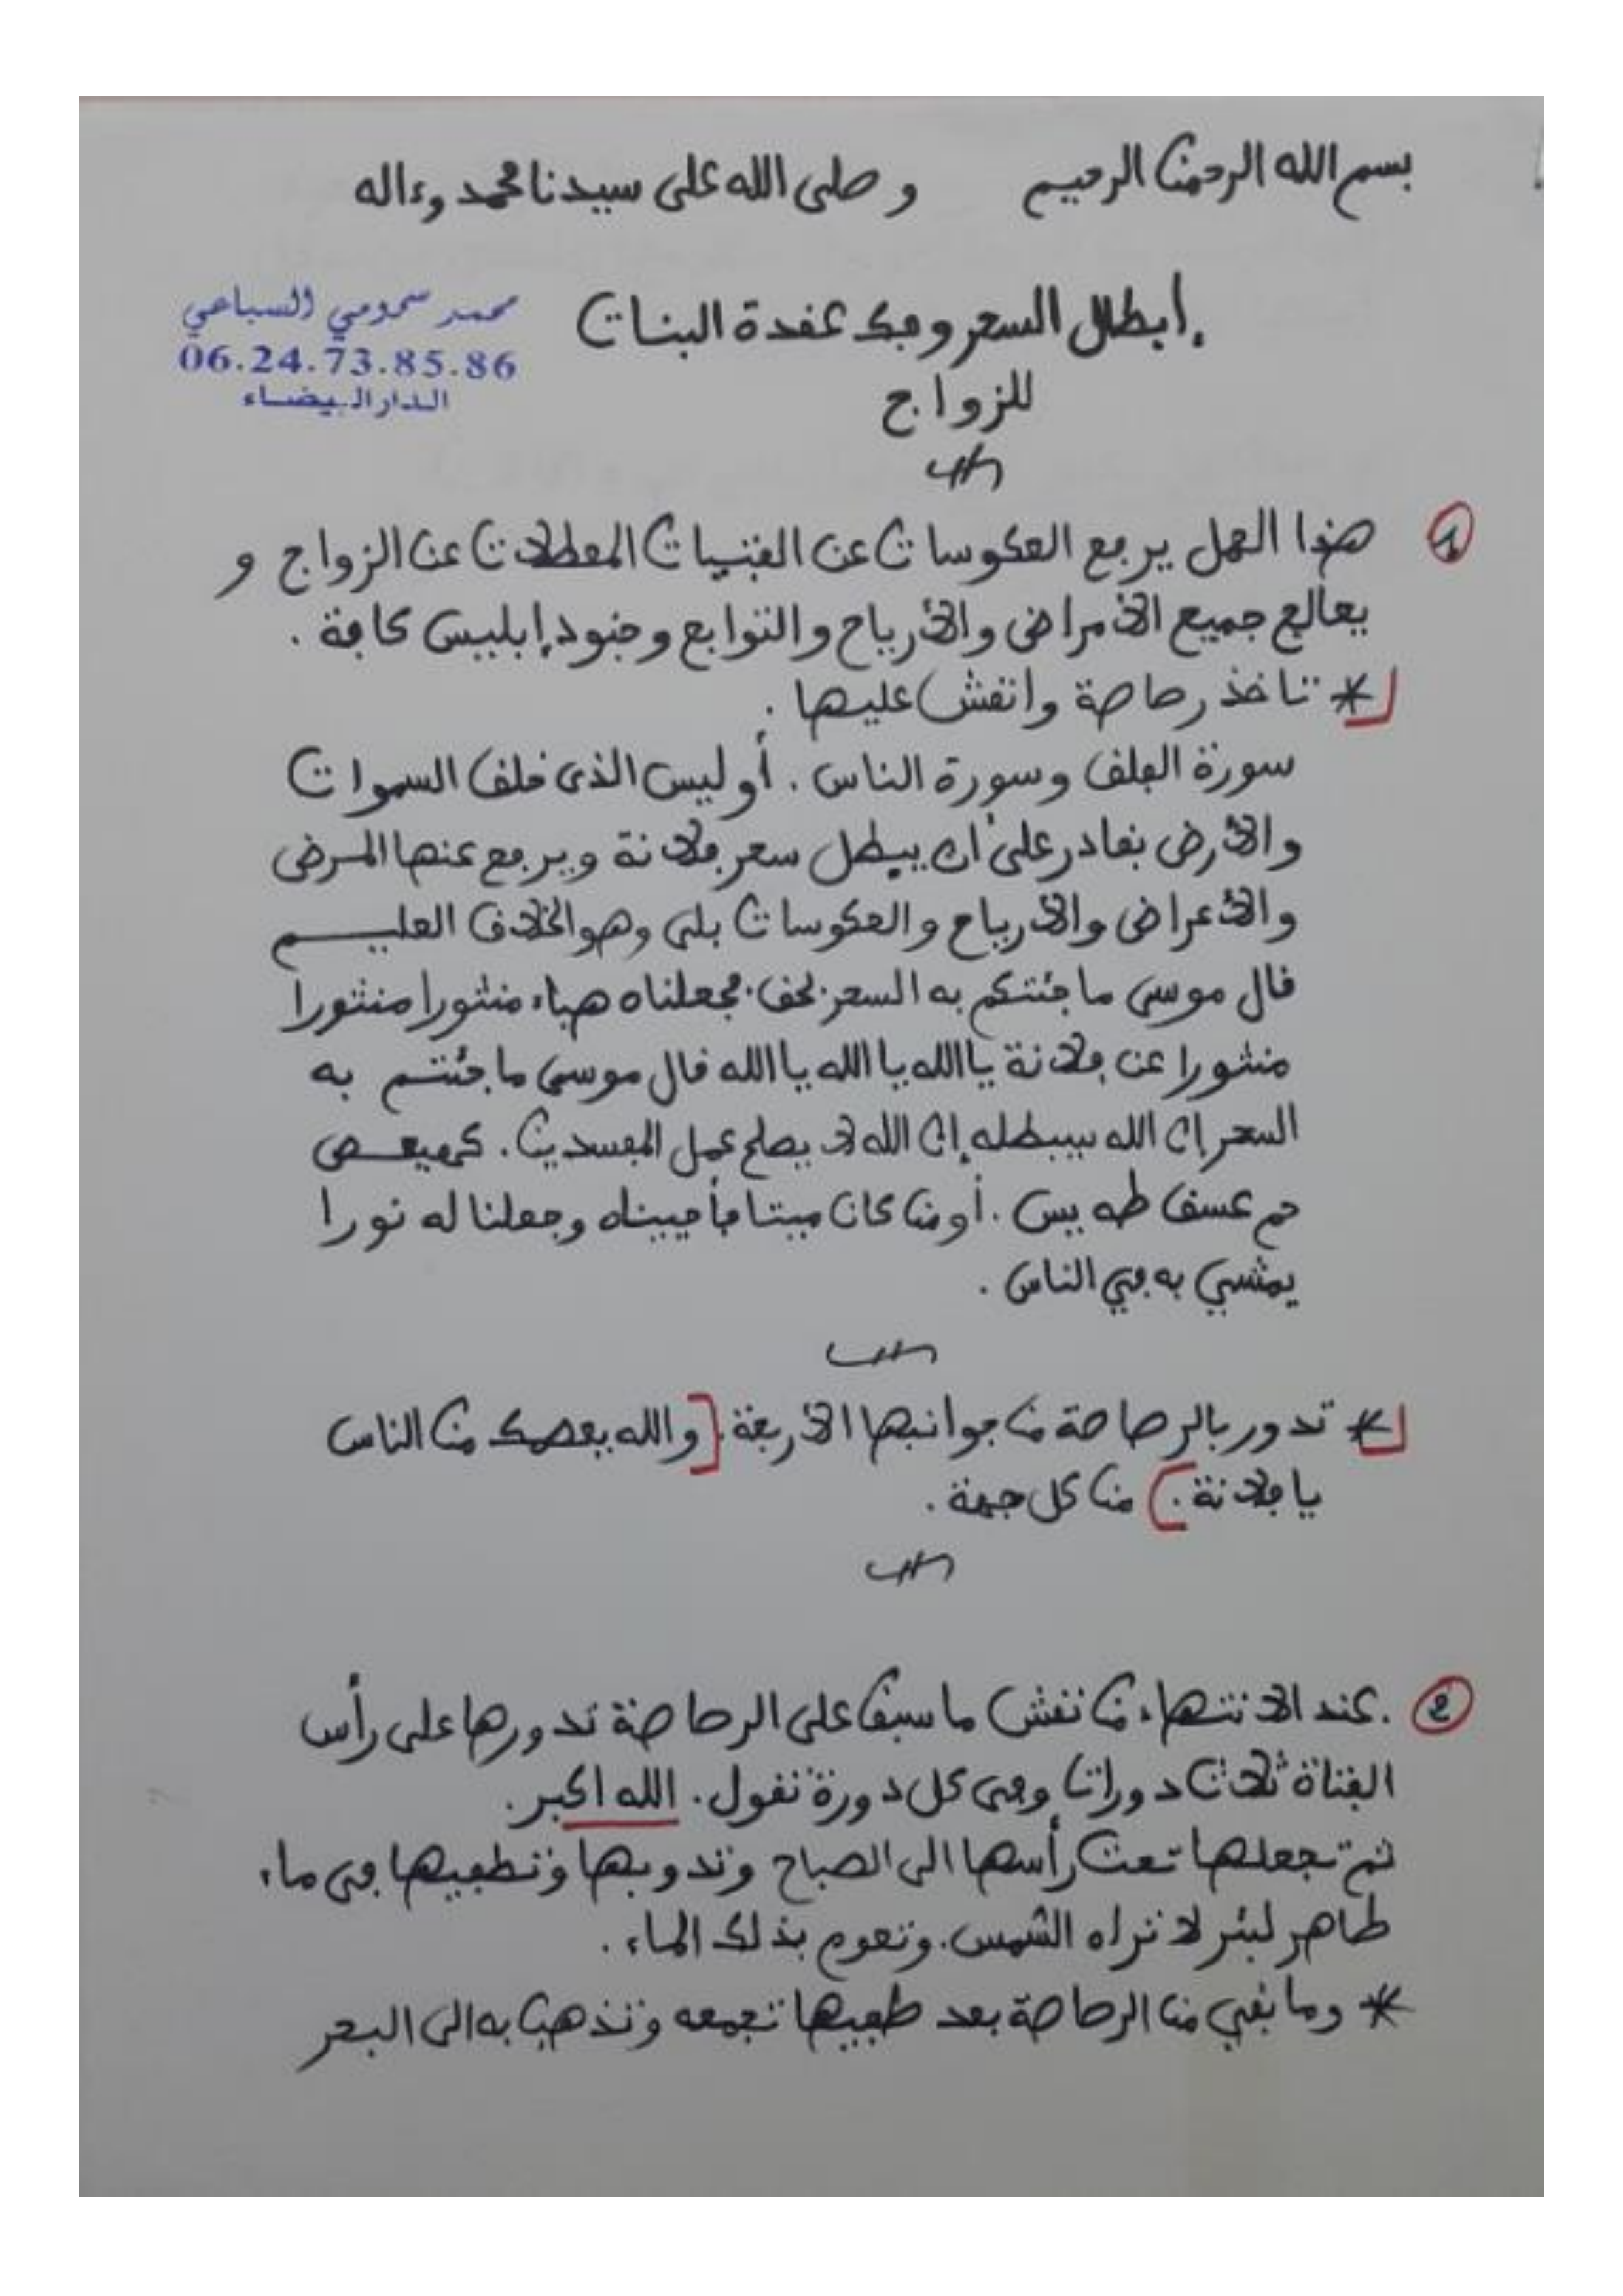 بسم الله الرحمن الرحيم وصلى الله على سيدنا محمد وءاله
إبطال السحر وفك عقدة البنات
للزواج
محمد سحومي السباعي
06.24.73.85.86
الدار البيضاء
1 هذا العمل يرفع العكوسات عن الفتيات المعطلات عن الزواج و
يعالج جميع الأمراض والأرياح والتوابع وجنود إبليس كافة .
* تاخذ رصاصة وانقش عليها .
سورة الفلق وسورة الناس . أوليس الذى خلق السموات
والأرض بقادر على أن يبطل سحر فلانة ويرفع عنها المرض
والأعراض والأرياح والعكوسات بلى وهو الخلاق العليم
قال موسى ما جئتكم به السحر . لحق . فجعلناه هباء منثورا منثورا
منثورا عن فلانة يا الله يا الله يا الله قال موسى ما جئتم به
السحر إن الله سيبطله إن الله لا يصلح عمل المفسدين . كهيعص
حم عسق طه يس . أو من كان ميتا فأحييناه وجعلنا له نورا
يمشي به في الناس .
* تدور بالرصاصة من جوانبها الأربعة . [والله يعصمك من الناس
يا فلانة .] من كل جهة .
2 . عند الانتهاء من نقش ما سبق على الرصاصة تدورها على رأس
الفتاة ثلاث دورات وفى كل دورة تقول . الله اكبر .
ثم تجعلها تحت رأسها الى الصباح وتدوبها وتطفيها فى ماء
طاهر لبئر لا تراه الشمس . وتعوم بذلك الماء .
* وما بقي من الرصاصة بعد طفيها تجمعه وتذهب به الى البحر